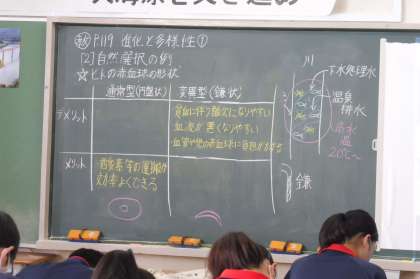 P.119 進化と多様性①
[2] 自然選択の例
☆ヒトの赤血球の形状
通常型(円盤状) 変異型(鎌状)
デメリット
貧血に伴う酸欠になりやすい
血流が悪くなりやすい
血管や他の赤血球に負担がかかる
メリット
酸素等の運搬が
効率よくできる
川
下水処理水
温泉
排水
水温
20℃〜
鎌